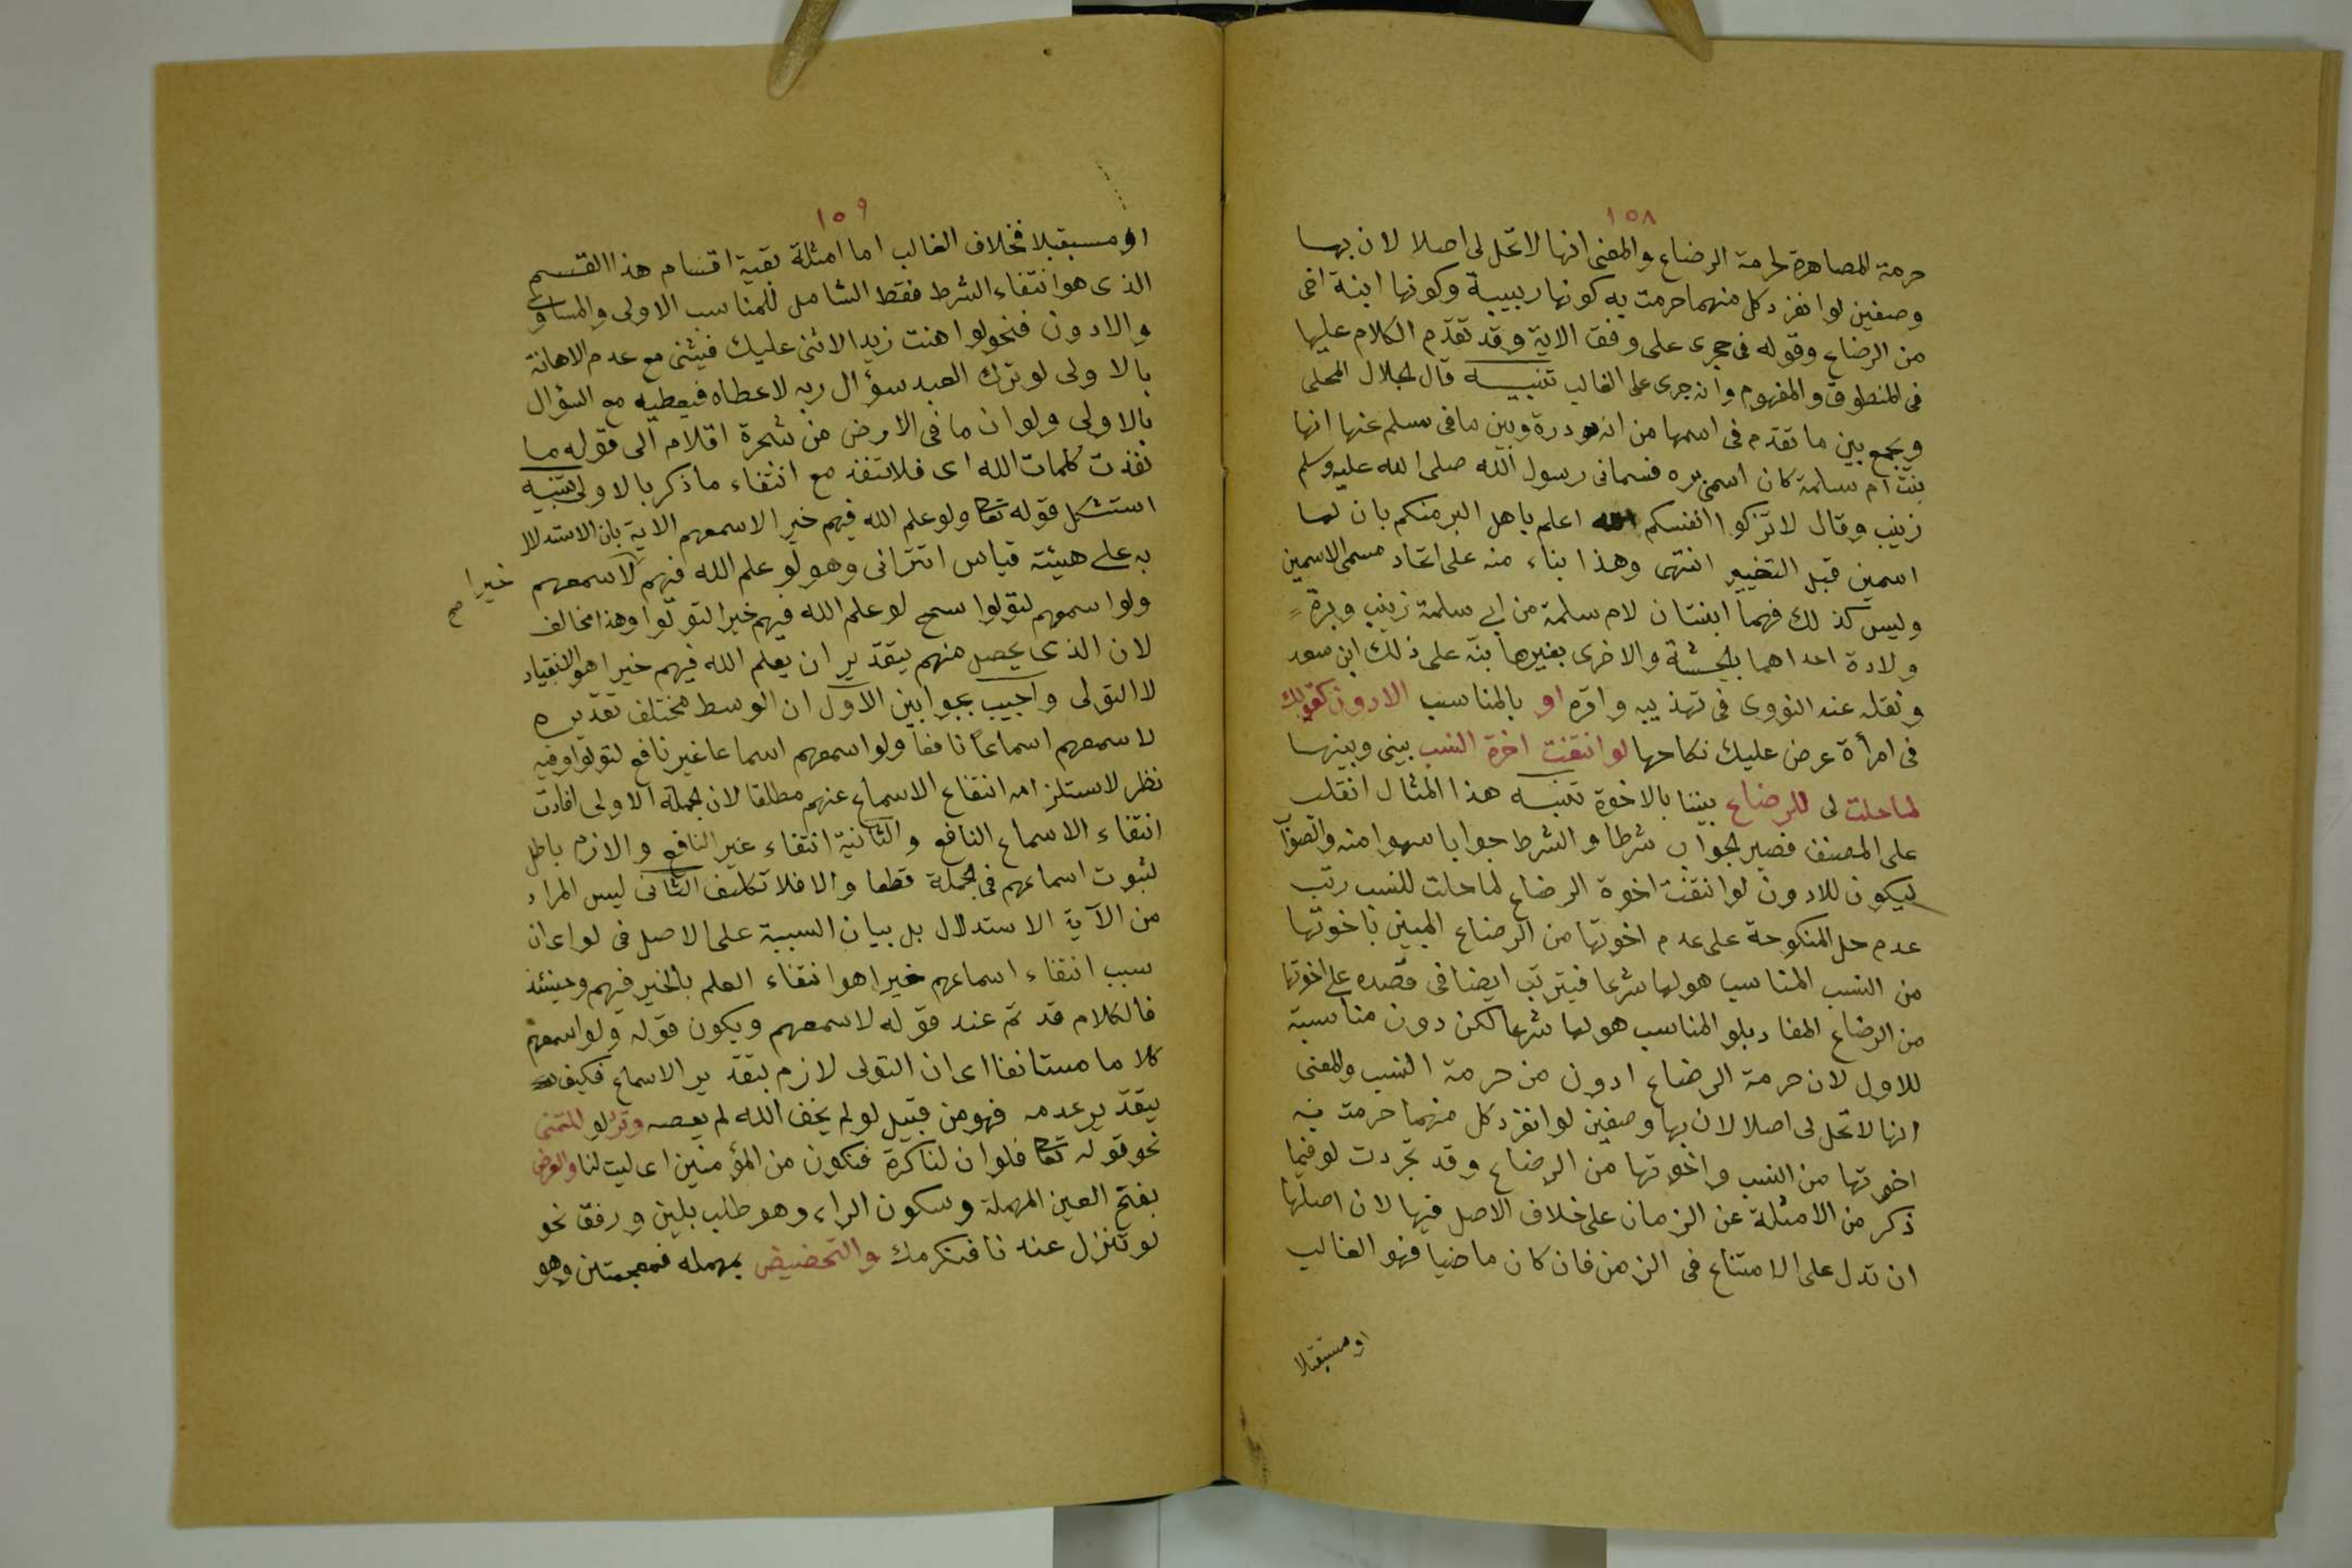 ١٥٨
حرمة المصاهرة لحرمة الرضاع والمعنى انها لا تحل لى اصلا لان بها
وصفين لو انفرد كل منهما حرمت به كونها ربيبة وكونها ابنة اخى
من الرضاع وقوله فى حجرى على وفق الاية وقد تقدّم الكلام عليها
فى المنطوق والمفهوم وانه جرى على الغالب تنبيه قال الجلال المحلى
ويجمع بين ما تقدّم فى اسمها من انه درة وبين ما فى مسلم عنها انها
بنت ام سلمة كان اسمى بره فسمانى رسول الله صلى الله عليه وسلم
زينب وقال لا تزكوا انفسكم الله اعلم باهل البر منكم بان لها
اسمين قبل التغيير انتهى وهذا بناء منه على اتحاد مسمى الاسمين
وليس كذلك فهما ابنتان لام سلمة من ابى سلمة زينب وبرة
ولادة احداهما بالحبشة والاخرى بغيرها بنّه على ذلك ابن سعد
ونقله عنه النووى فى تهذيبه واقره او بالمناسب الادون كقولك
فى امرأة عرض عليك نكاحها لو انتفت اخوة النسب بينى وبينها
لما حلت لى للرضاع بيننا بالاخوة تنبيه هذا المثال انقلب
على المصنف فصير الجواب شرطا والشرط جوابا سهوا منه والصواب
ليكون للادون لو انتفت اخوة الرضاع لما حلت للنسب رتب
عدم حل المنكوحة على عدم اخوتها من الرضاع المبين باخوتها
من النسب المناسب هو لها شرعا فيترتب ايضا فى قصده على اخوتها
من الرضاع المفاد بلو المناسب هو لها شرعا لكن دون مناسبة
للاول لان حرمة الرضاع ادون من حرمة النسب والمعنى
انها لا تحل لى اصلا لان بها وصفين لو انفرد كل منهما حرمت به
اخوتها من النسب واخوتها من الرضاع وقد تجردت لو فيما
ذكر من الامثلة عن الزمان على خلاف الاصل فيها لان اصلها
ان تدل على الامتناع فى الزمن فان كان ماضيا فهو الغالب
او مستقبلا
١٥٩
او مستقبلا فخلاف الغالب اما امثلة بقية اقسام هذا القسم
الذى هو انتفاء الشرط فقط الشامل للمناسب الاولى والمساوى
والادون فنحو لو اهنت زيدا لاثنى عليك فيثنى مع عدم الاهانة
بالاولى لو ترك العبد سؤال ربه لاعطاه فيعطيه مع السؤال
بالاولى ولو ان ما فى الارض من شجرة اقلام الى قوله ما
نفذت كلمات الله اى فلا تنفذ مع انتفاء ما ذكر بالاولى تنبيه
استشكل قوله تعا ولو علم الله فيهم خيرا لاسمعهم الاية بان الاستدلال
به على هيئة قياس اقترانى وهو لو علم الله فيهم لاسمعهم
خيرا صح
ولو اسمعهم لتولوا سمح لو علم الله فيهم خيرا لتولوا وهذا مخالف
لان الذى يحصل منهم بتقدير ان يعلم الله فيهم خيرا هو الانقياد
لا التولى واجيب بجوابين الاول ان الوسط مختلف تقديره
لاسمعهم اسماعا نافعا ولو اسمعهم اسماعا غير نافع لتولوا وفيه
نظر لاستلزامه انتفاع الاسماع عنهم مطلقا لان الجملة الاولى افادت
انتفاء الاسماع النافع والثانية انتفاء غير النافع والازم باطل
لثبوت اسماعهم فى الجملة قطعا والا فلا تكليف الثانى ليس المراد
من الآية الاستدلال بل بيان السببية على الاصل فى لو اى ان
سبب انتفاء اسماعهم خيرا هو انتفاء العلم بالخير فيهم وحينئذ
فالكلام قد تم عند قوله لاسمعهم ويكون قوله ولو اسمعهم
كلاما مستانفا اى ان التولى لازم بتقدير الاسماع فكيف
بتقدير عدمه فهو من قبيل لو لم يخف الله لم يعصه وترد لو للتمنى
نحو قوله تعا فلو ان لنا كرة فنكون من المؤمنين اى ليت لنا والعرض
بفتح العين المهملة وسكون الراء وهو طلب بلين ورفق نحو
لو تنزل عندنا فنكرمك والتحضيض بمهمله فمعجمتين وهو